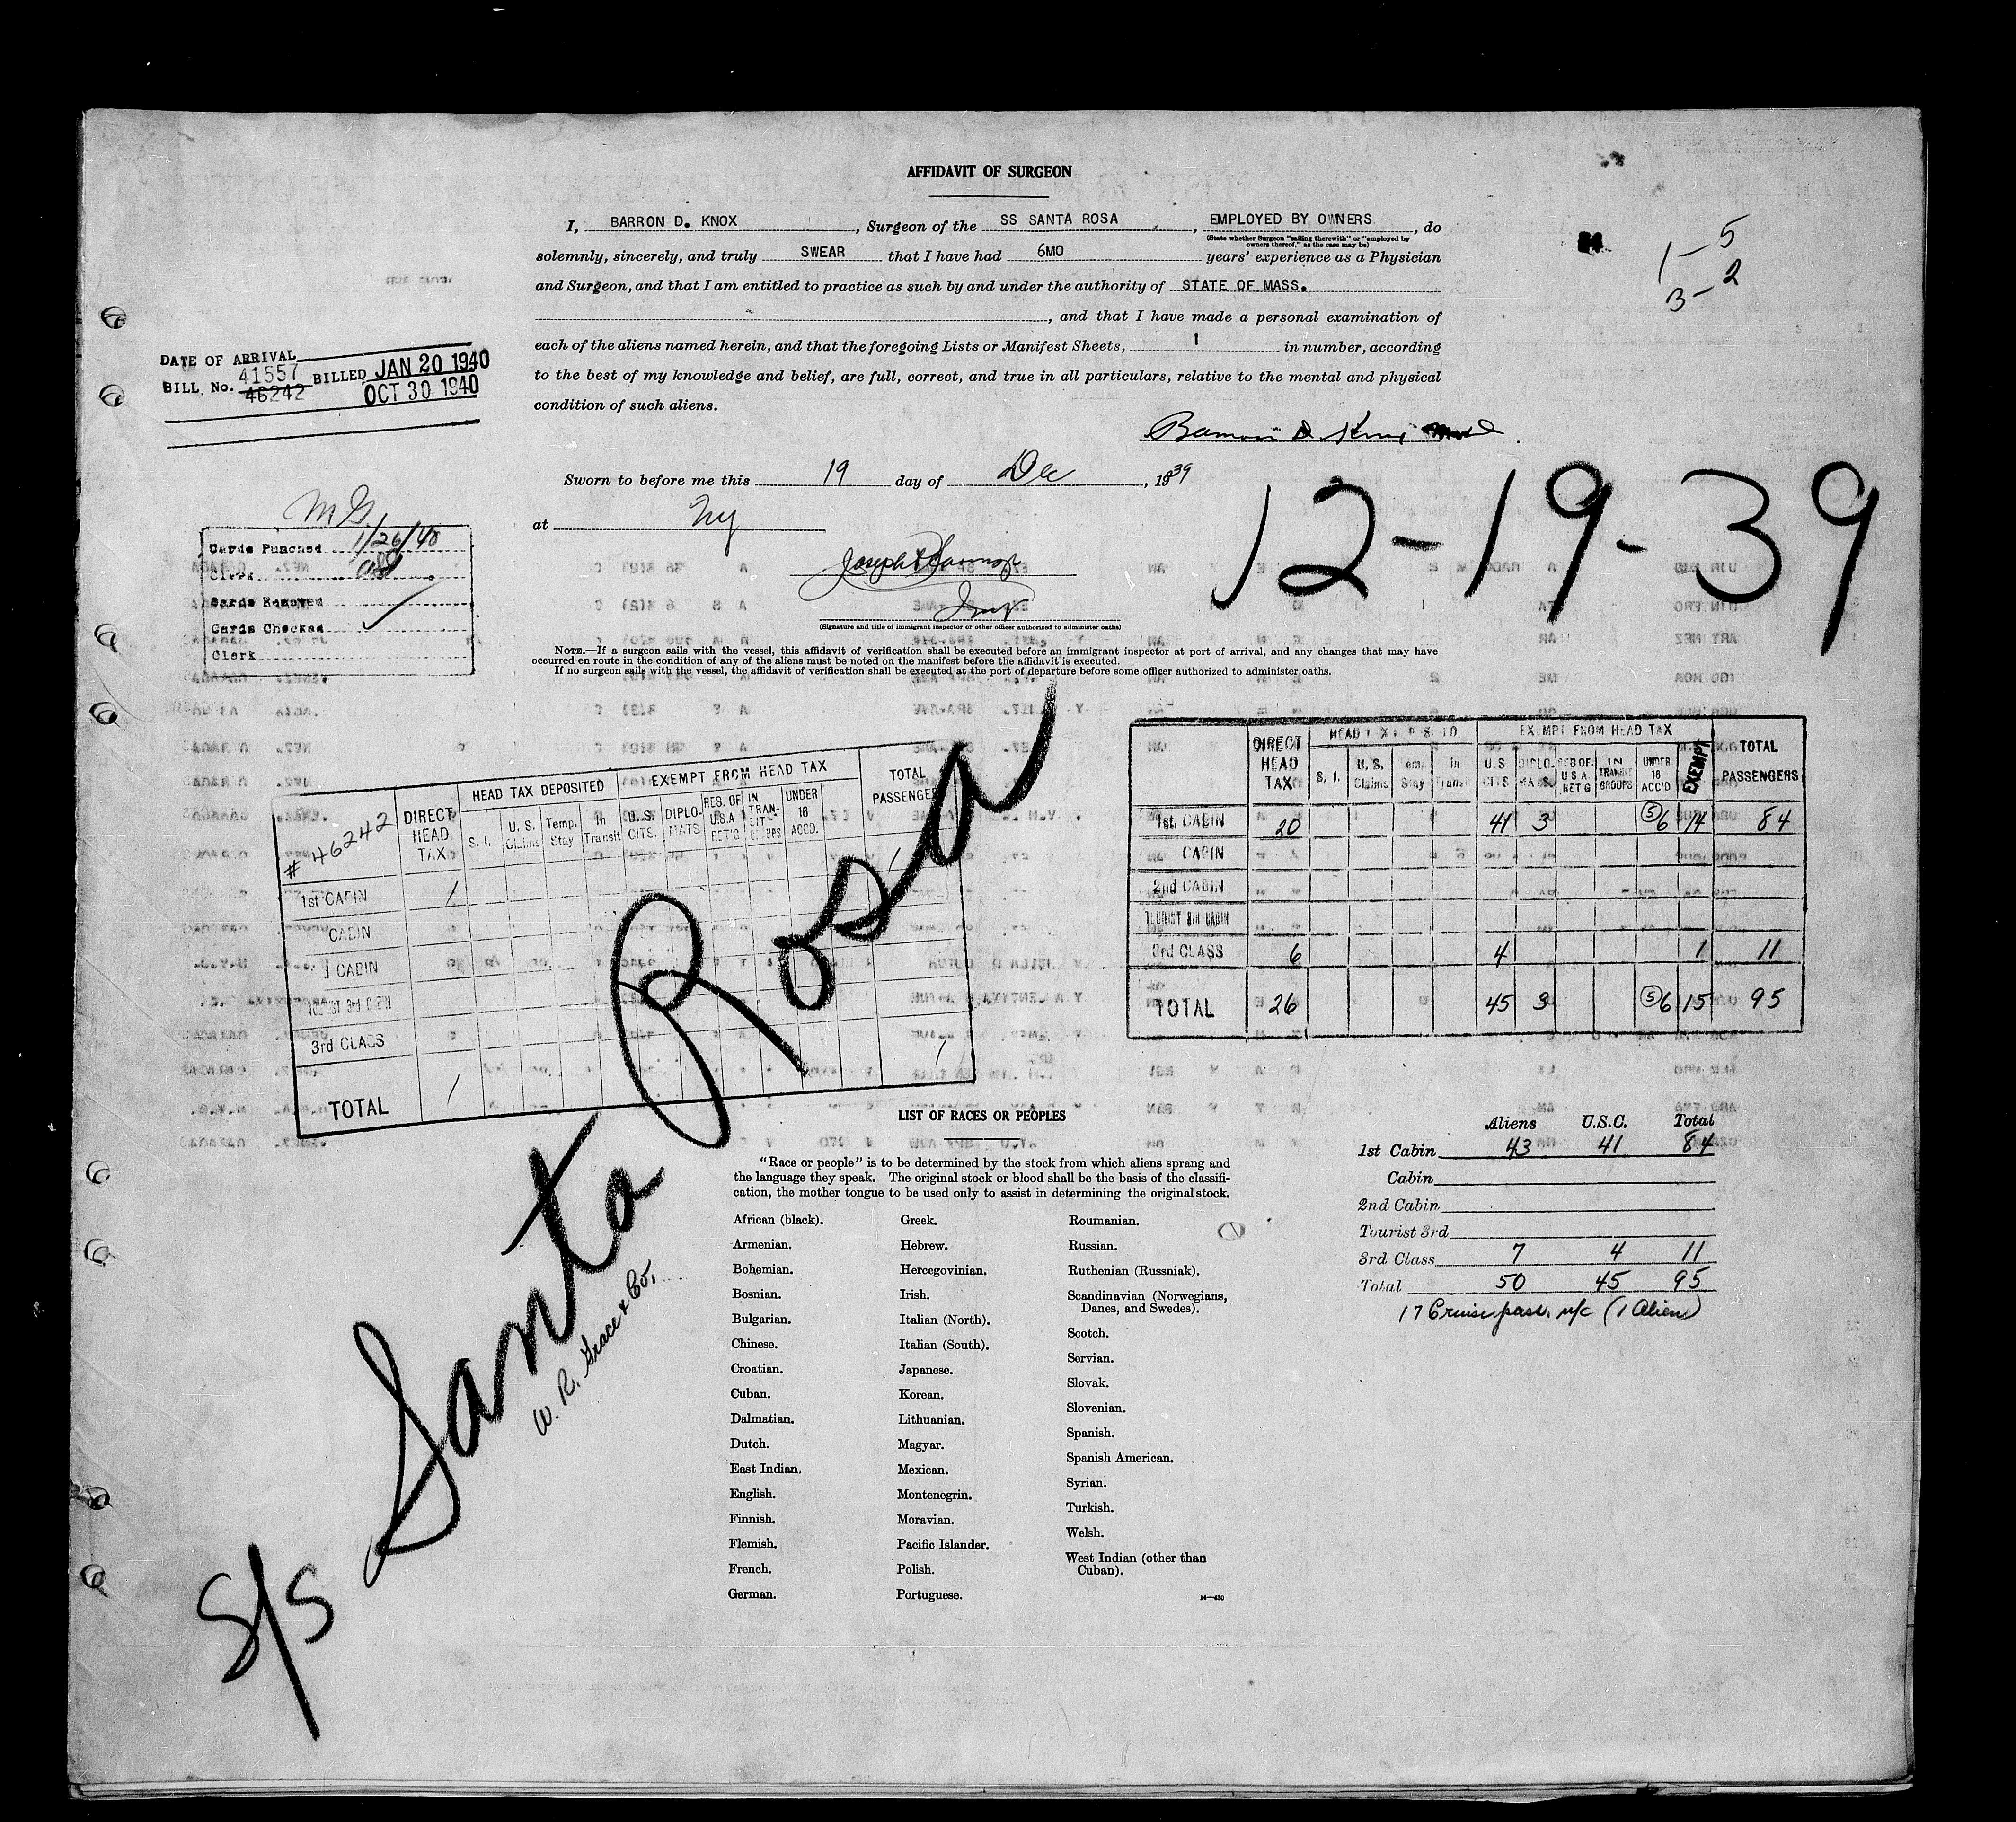 AFFIDAVIT OF SURGEON
I, BARRON D. KNOX, Surgeon of the SS SANTA ROSA, EMPLOYED BY OWNERS, do
(State whether Surgeon "sailing therewith" or "employed by
owners thereof," as the case may be)
solemnly, sincerely, and truly SWEAR that I have had 6MO years' experience as a Physician
and Surgeon, and that I am entitled to practice as such by and under the authority of STATE OF MASS.
, and that I have made a personal examination of
each of the aliens named herein, and that the foregoing Lists or Manifest Sheets, 1 in number, according
to the best of my knowledge and belief, are full, correct, and true in all particulars, relative to the mental and physical
condition of such aliens.
1-5
3-2
DATE OF ARRIVAL
BILL No. 41557 BILLED JAN 20 1940
46242 OCT 30 1940
Barron D Knox
Sworn to before me this 19 day of Dec, 1939
at NY
Joseph
Insp
(Signature and title of immigrant inspector or other officer authorized to administer oaths)
12-19-39
MG
Cards Punched 1/26/40
Clerk
Cards Removed
Cards Checked
Clerk
NOTE.—If a surgeon sails with the vessel, this affidavit of verification shall be executed before an immigrant inspector at port of arrival, and any changes that may have
occurred en route in the condition of any of the aliens must be noted on the manifest before the affidavit is executed.
If no surgeon sails with the vessel, the affidavit of verification shall be executed at the port of departure before some officer authorized to administer oaths.
# 46242
DIRECT HEAD TAX
HEAD TAX DEPOSITED
S. I. U. S. Claims Temp. Stay In Transit
EXEMPT FROM HEAD TAX
U. S. CITS. DIPLO-MATS RES. OF U.S.A. RET'G IN TRAN-SIT GROUPS UNDER 16 ACCD.
TOTAL PASSENGERS
1st CABIN 1 1
CABIN
CABIN
TOURIST 3rd CABIN
3rd CLASS
TOTAL 1 1
DIRECT HEAD TAX
EXEMPT FROM HEAD TAX
S. I. U. S. Claims Temp. Stay In Transit
U. S. CITS DIPLO-MATS RES OF U.S.A. RET'G IN TRANSIT GROUPS UNDER 16 ACC'D EXEMPT
TOTAL PASSENGERS
1st CABIN 20 41 3 (5)6 14 84
CABIN
2nd CABIN
TOURIST 3rd CABIN
3rd CLASS 6 4 1 11
TOTAL 26 45 3 (5)6 15 95
S/S Santa Rosa
W. R. Grace & Co.
LIST OF RACES OR PEOPLES
"Race or people" is to be determined by the stock from which aliens sprang and
the language they speak. The original stock or blood shall be the basis of the classifi-
cation, the mother tongue to be used only to assist in determining the original stock.
African (black).
Armenian.
Bohemian.
Bosnian.
Bulgarian.
Chinese.
Croatian.
Cuban.
Dalmatian.
Dutch.
East Indian.
English.
Finnish.
Flemish.
French.
German.
Greek.
Hebrew.
Hercegovinian.
Irish.
Italian (North).
Italian (South).
Japanese.
Korean.
Lithuanian.
Magyar.
Mexican.
Montenegrin.
Moravian.
Pacific Islander.
Polish.
Portuguese.
Roumanian.
Russian.
Ruthenian (Russniak).
Scandinavian (Norwegians,
Danes, and Swedes).
Scotch.
Servian.
Slovak.
Slovenian.
Spanish.
Spanish American.
Syrian.
Turkish.
Welsh.
West Indian (other than
Cuban).
14—430
Aliens U.S.C. Total
1st Cabin 43 41 84
Cabin
2nd Cabin
Tourist 3rd
3rd Class 7 4 11
Total 50 45 95
17 Cruise pass. n/c (1 Alien)